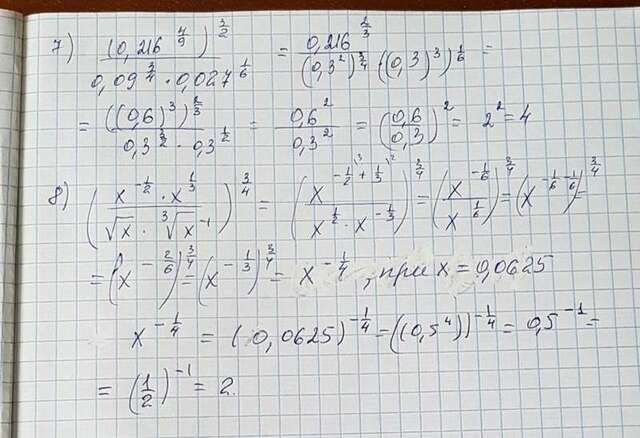 7) (0,216^(4/9))^(3/2) / (0,09^(3/4) · 0,027^(1/6)) = 0,216^(2/3) / ((0,3²)^(3/4) · ((0,3)³)^(1/6)) =
= ((0,6)³)^(2/3) / (0,3^(3/2) · 0,3^(1/2)) = 0,6² / 0,3² = (0,6/0,3)² = 2² = 4
8) (x^(-1/2) · x^(1/3) / (√x · ∛x⁻¹))^(3/4) = (x^(-1/2 + 1/3) / (x^(1/2) · x^(-1/3)))^(3/4) = (x^(-1/6) / x^(1/6))^(3/4) = (x^(-1/6 - 1/6))^(3/4) =
= (x^(-2/6))^(3/4) = (x^(-1/3))^(3/4) = x^(-1/4), при x = 0,0625
x^(-1/4) = (0,0625)^(-1/4) = ((0,5⁴))^(-1/4) = 0,5⁻¹ =
= (1/2)⁻¹ = 2.